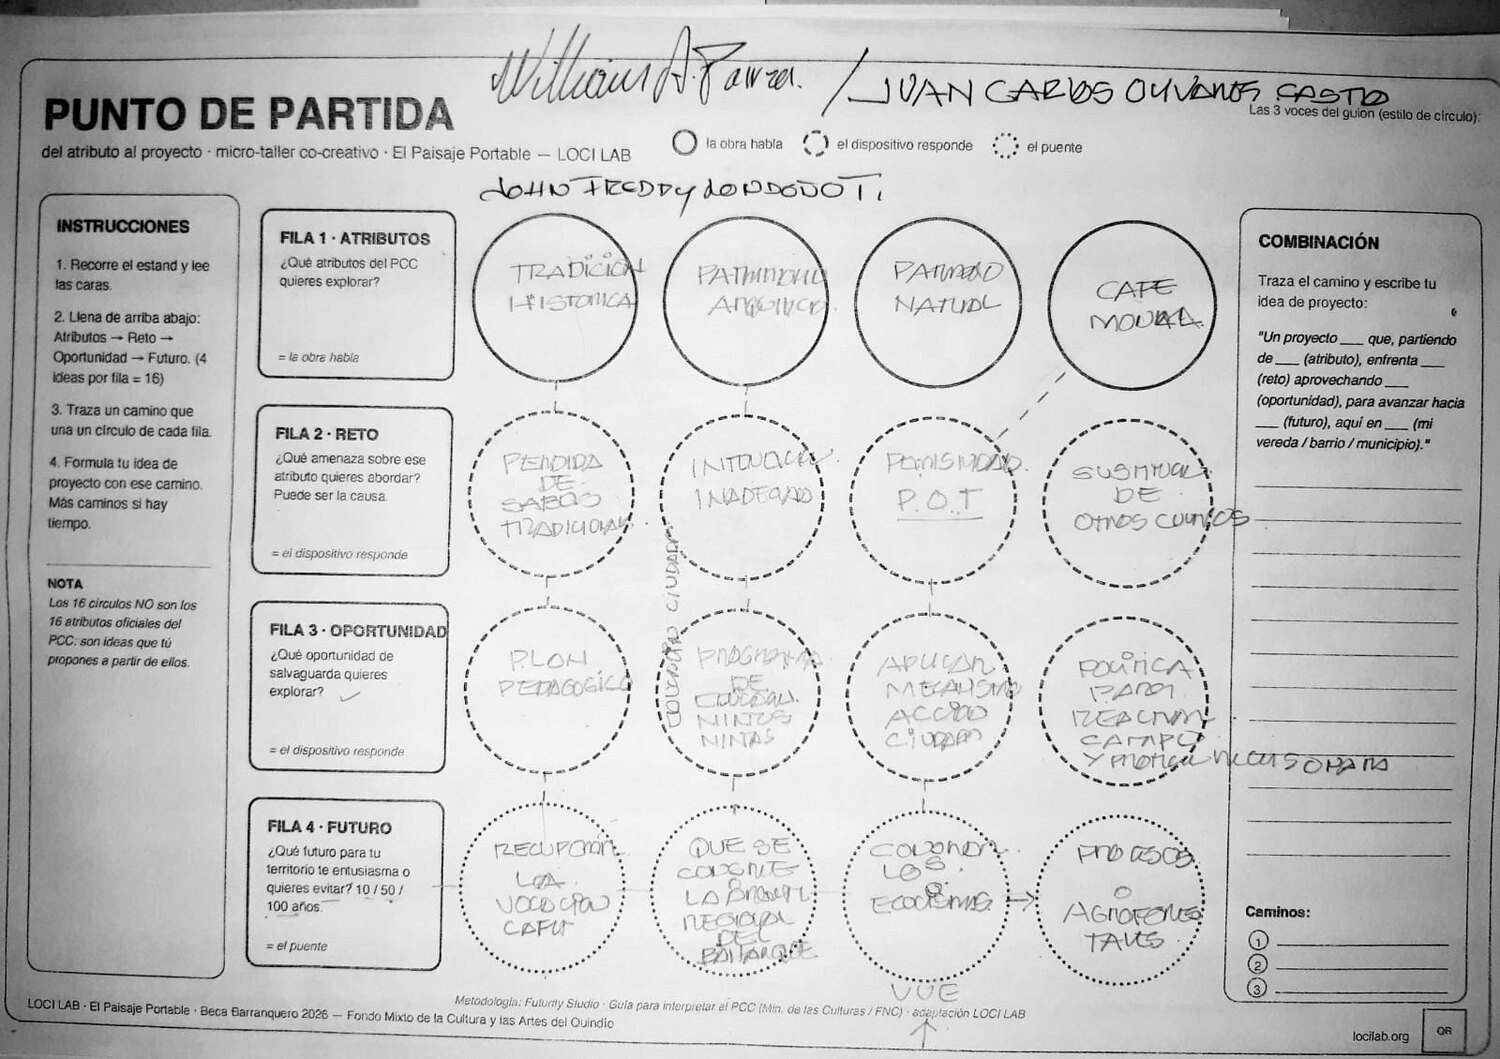 William A.
/ JUAN CARLOS OLIVARES CASTRO
PUNTO DE PARTIDA
Las 3 voces del guion (estilo de círculo):
del atributo al proyecto · micro-taller co-creativo · El Paisaje Portable — LOCI LAB
la obra habla
el dispositivo responde
el puente
JOHN FREDDY LONDOÑO T.
INSTRUCCIONES
1. Recorre el estand y lee
las caras.
2. Llena de arriba abajo:
Atributos → Reto →
Oportunidad → Futuro. (4
ideas por fila = 16)
3. Traza un camino que
una un círculo de cada fila.
4. Formula tu idea de
proyecto con ese camino.
Más caminos si hay
tiempo.
NOTA
Los 16 círculos NO son los
16 atributos oficiales del
PCC: son ideas que tú
propones a partir de ellos.
FILA 1 · ATRIBUTOS
¿Qué atributos del PCC
quieres explorar?
= la obra habla
TRADICION
HISTORICA
PATRIMONIO
PATRIMONIO
NATURAL
CAFE
FILA 2 · RETO
¿Qué amenaza sobre ese
atributo quieres abordar?
Puede ser la causa.
= el dispositivo responde
PERDIDA
DE
SABERES
TRADICIONALES
INADECUADO
P.O.T
DE
OTROS CULTIVOS
FILA 3 · OPORTUNIDAD
¿Qué oportunidad de
salvaguarda quieres
explorar?
= el dispositivo responde
PLAN
PEDAGOGICO
PROGRAMA
DE
NIÑOS
NIÑAS
APLICAR
MECANISMO
ACCIÓN
CIUDADANA
POLÍTICA
PARA
CAMPO
FILA 4 · FUTURO
¿Qué futuro para tu
territorio te entusiasma o
quieres evitar? 10 / 50 /
100 años.
= el puente
RECUPERAR
LA
VOCACION
CAFET
QUE SE
LA
REGIONAL
DEL
LOS
PROCESOS
O
AGROFORES
TALES
VUE
COMBINACIÓN
Traza el camino y escribe tu
idea de proyecto:
"Un proyecto ___ que, partiendo
de ___ (atributo), enfrenta ___
(reto) aprovechando ___
(oportunidad), para avanzar hacia
___ (futuro), aquí en ___ (mi
vereda / barrio / municipio)."
Caminos:
1
2
3
LOCI LAB · El Paisaje Portable · Beca Barranquero 2026 — Fondo Mixto de la Cultura y las Artes del Quindío
Metodología: Futurity Studio · Guía para interpretar el PCC (Min. de las Culturas / FNC) · adaptación LOCI LAB
locilab.org
QR